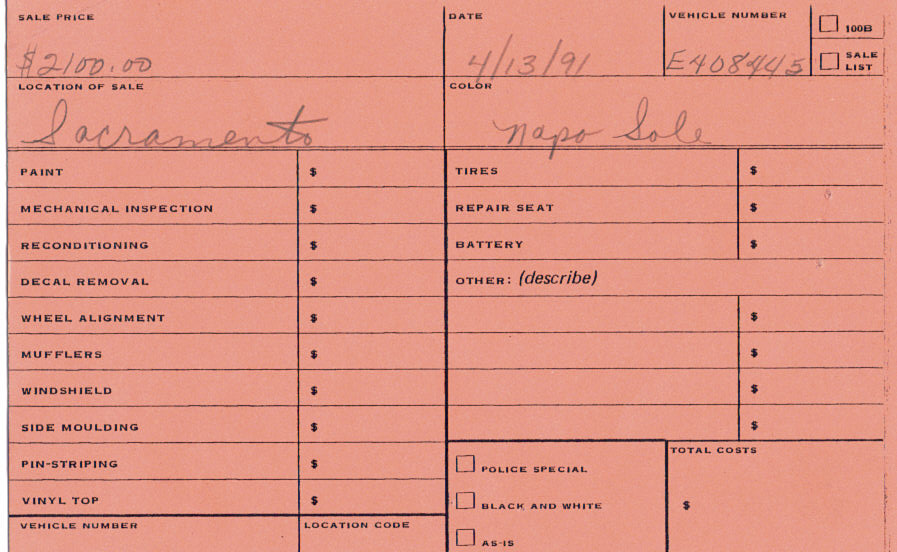 SALE PRICE DATE VEHICLE NUMBER
$2100.00 4/13/91 E408445
100B
SALE LIST
LOCATION OF SALE COLOR
Sacramento Napo Sole
PAINT $ TIRES $
MECHANICAL INSPECTION $ REPAIR SEAT $
RECONDITIONING $ BATTERY $
DECAL REMOVAL $ OTHER: (describe)
WHEEL ALIGNMENT $ $
MUFFLERS $ $
WINDSHIELD $ $
SIDE MOULDING $ $
PIN-STRIPING $ POLICE SPECIAL TOTAL COSTS
VINYL TOP $ BLACK AND WHITE $
VEHICLE NUMBER LOCATION CODE
AS-IS